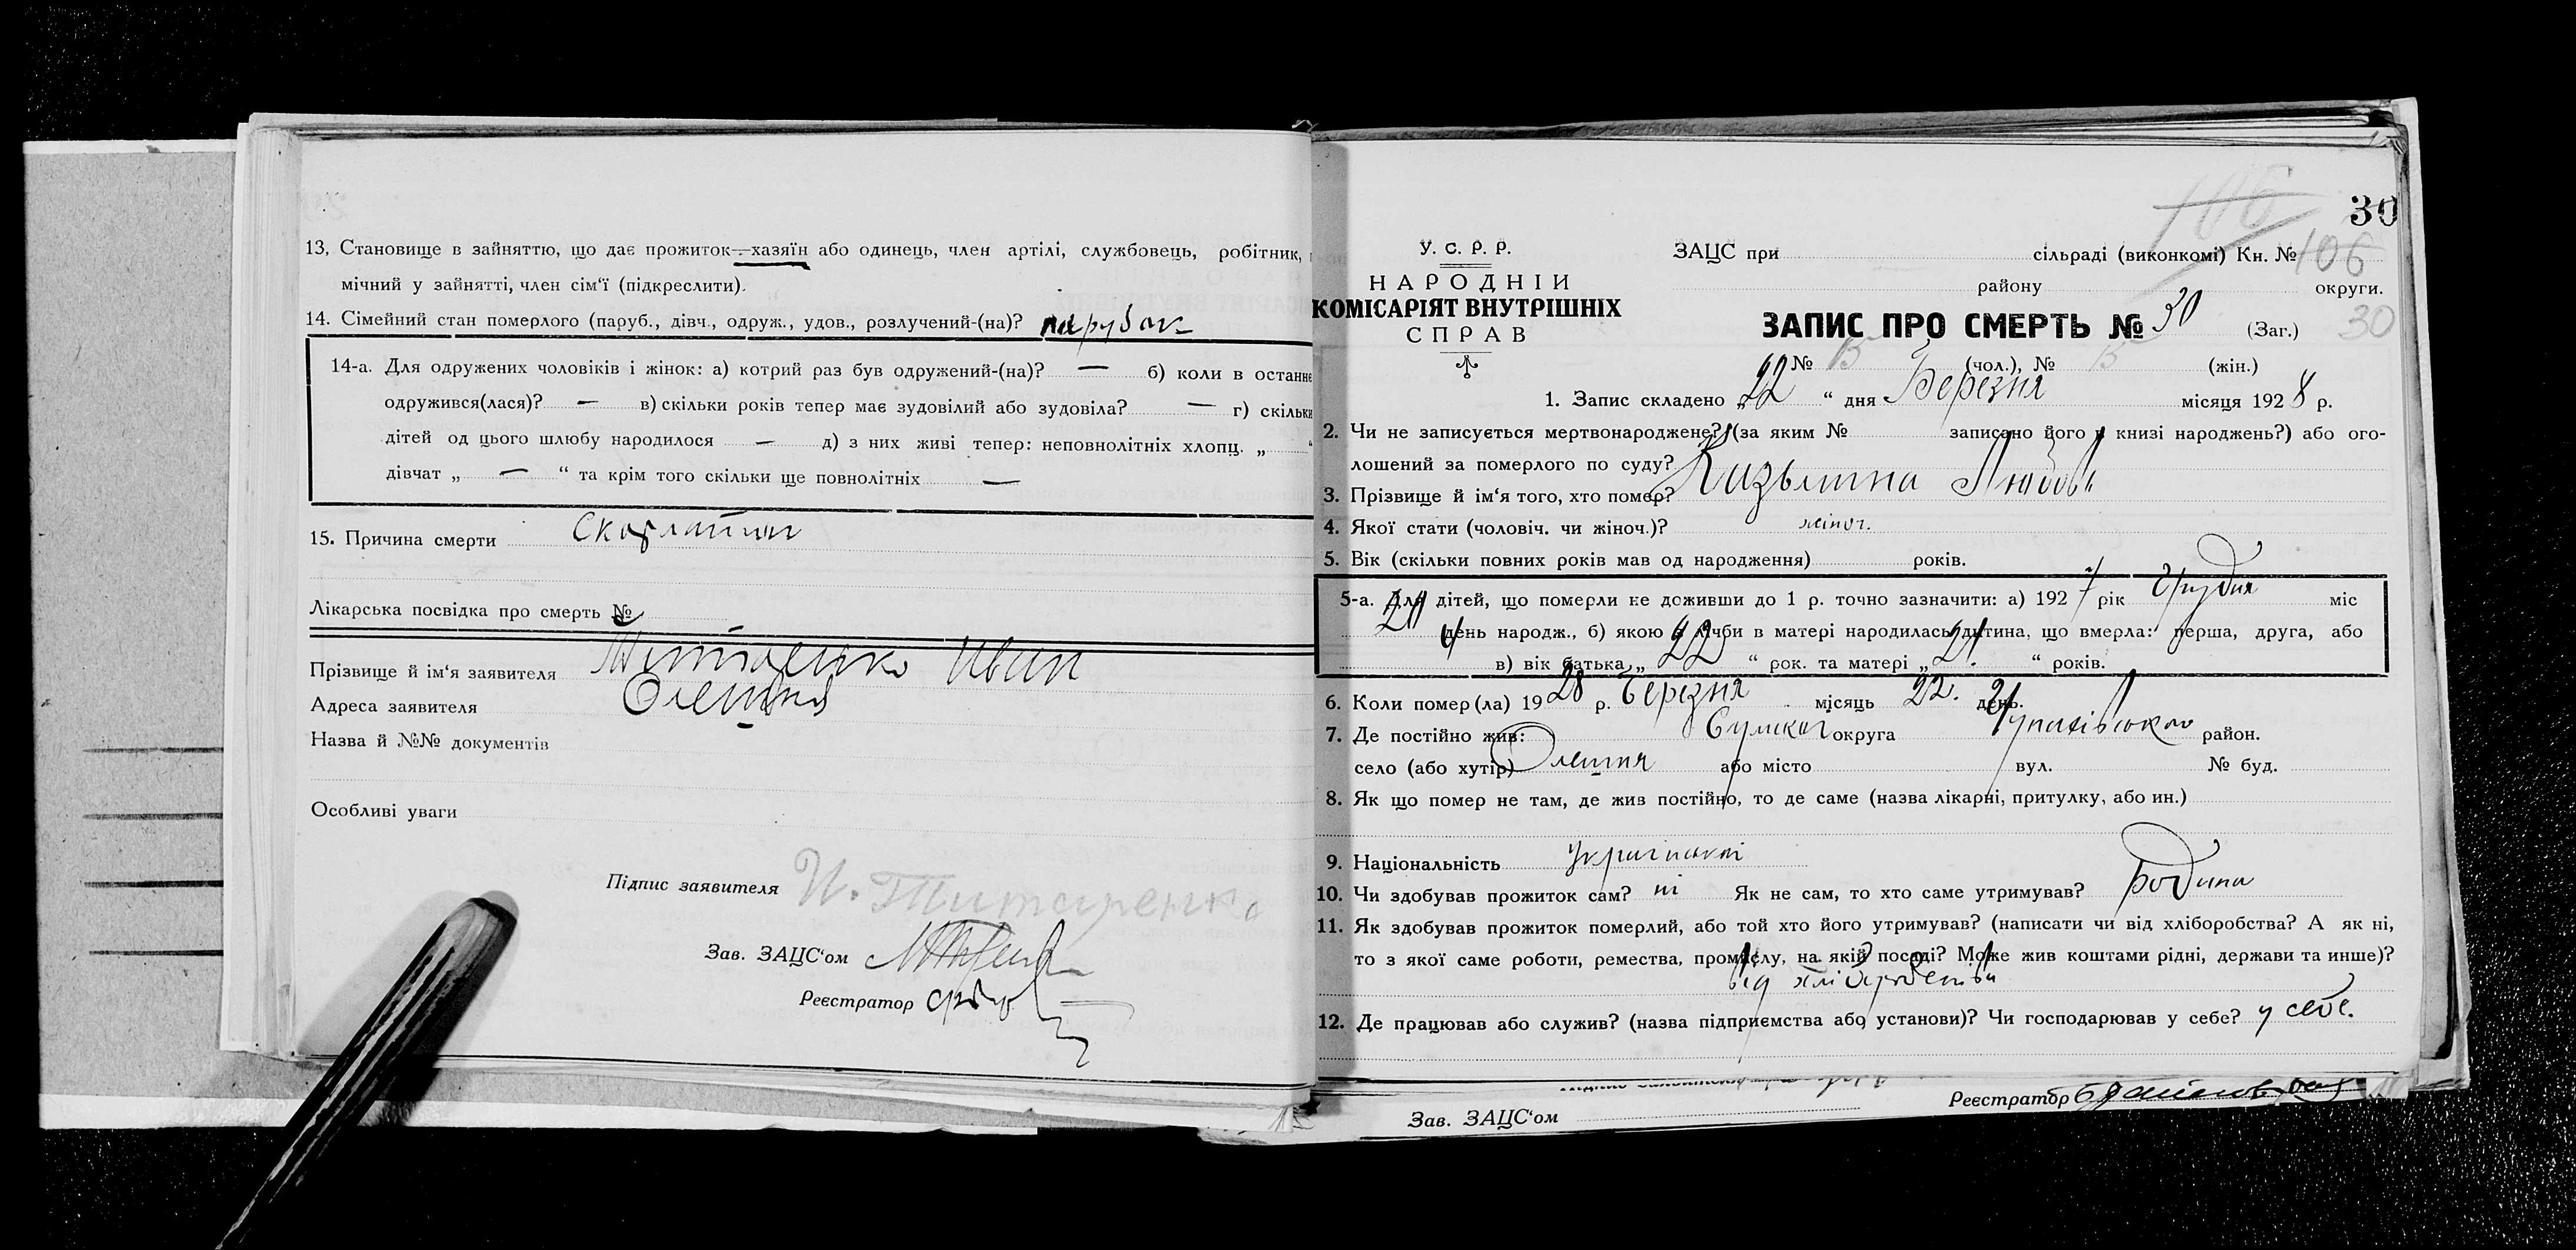 13, Становище в зайняттю, що дає прожиток—хазяїн або одинець, член артілі, службовець, робітник,
мічний у зайнятті, член сім'ї (підкреслити).
14. Сімейний стан померлого (паруб., дівч., одруж., удов., розлучений-(на)? парубок
14-а. Для одружених чоловіків і жінок: а) котрий раз був одружений-(на)? — б) коли в останнє
одружився(лася)? — в) скільки років тепер має зудовілий або зудовіла? — г) скільки
дітей од цього шлюбу народилося — д) з них живі тепер: неповнолітніх хлопц. „
дівчат „ — “ та крім того скільки ще повнолітніх —
15. Причина смерти Скарлатина
Лікарська посвідка про смерть №
Прізвище й ім'я заявителя Титаренко Иван
Адреса заявителя Олешня
Назва й №№ документів
Особливі уваги
Підпис заявителя И. Титаренко
Зав. ЗАЦС'ом
Реєстратор
106
30
У. С. Р. Р.
НАРОДНІЙ
КОМІСАРІЯТ ВНУТРІШНІХ
СПРАВ
ЗАЦС при сільраді (виконкомі) Кн. № 106
району округи.
ЗАПИС ПРО СМЕРТЬ № 30 (Заг.) 30
№ 15 (чол.), № 15 (жін.)
1. Запис складено „22 “ дня Березня місяця 1928 р.
2. Чи не записується мертвонароджене? (за яким № записано його в книзі народжень?) або ого-
лошений за померлого по суду?
3. Прізвище й ім'я того, хто помер? Любовь
4. Якої стати (чоловіч. чи жіноч.)? жіноч.
5. Вік (скільки повних років мав од народження) років.
5-а. Для дітей, що померли не доживши до 1 р. точно зазначити: а) 1927 рік Грудня міс
день народж., б) якою з лічби в матері народилась дитина, що вмерла: перша, друга, або
в) вік батька „ 22 “ рок. та матері „ 21. “ років.
6. Коли помер(ла) 1928 р. Березня місяць 22. день.
7. Де постійно жив: Сумской округа район.
село (або хутір) Олешня або місто вул. № буд.
8. Як що помер не там, де жив постійно, то де саме (назва лікарні, притулку, або ин.)
9. Національність
10. Чи здобував прожиток сам? ні Як не сам, то хто саме утримував? Родина
11. Як здобував прожиток померлий, або той хто його утримував? (написати чи від хліборобства? А як ні,
то з якої саме роботи, ремества, промислу, на якій посаді? Може жив коштами рідні, держави та инше)?
від хліборобства
12. Де працював або служив? (назва підприємства або установи)? Чи господарював у себе? у себе.
Зав. ЗАЦС'ом Реєстратор